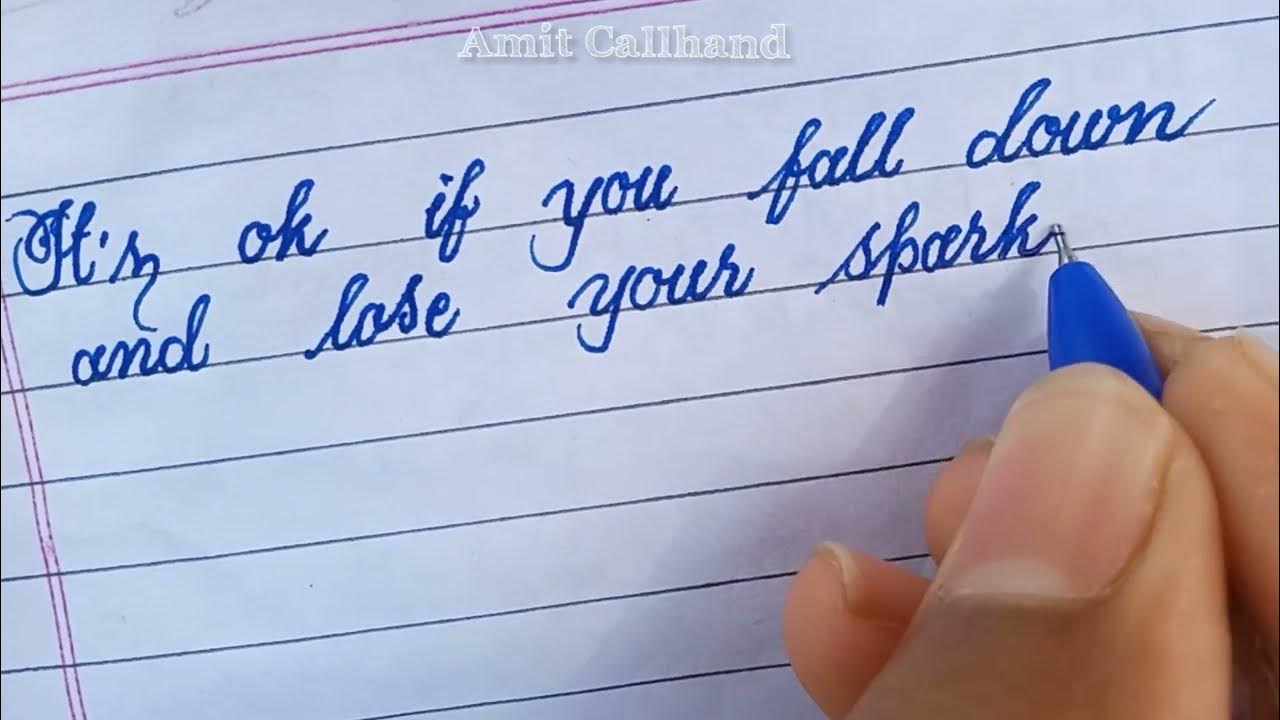 Amit Callhand
It's ok if you fall down
and lose your spark